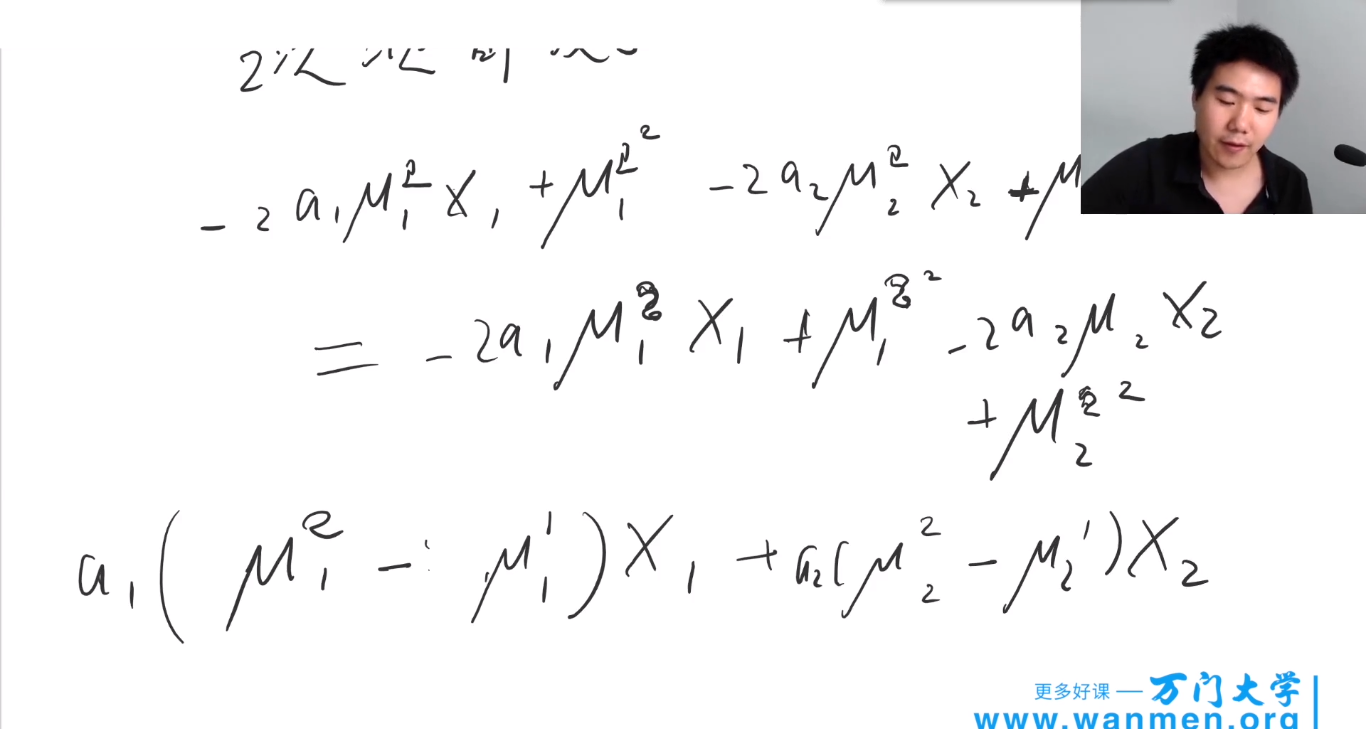 -2a₁μ₁²x₁ + μ₁²² -2a₂μ₂²x₂ + μ
= -2a₁μ₁²x₁ + μ₁²² -2a₂μ₂x₂
+ μ₂²²
a₁(μ₁² - μ₁¹)x₁ + a₂(μ₂² - μ₂¹)x₂
更多好课 — 万门大学
www.wanmen.org